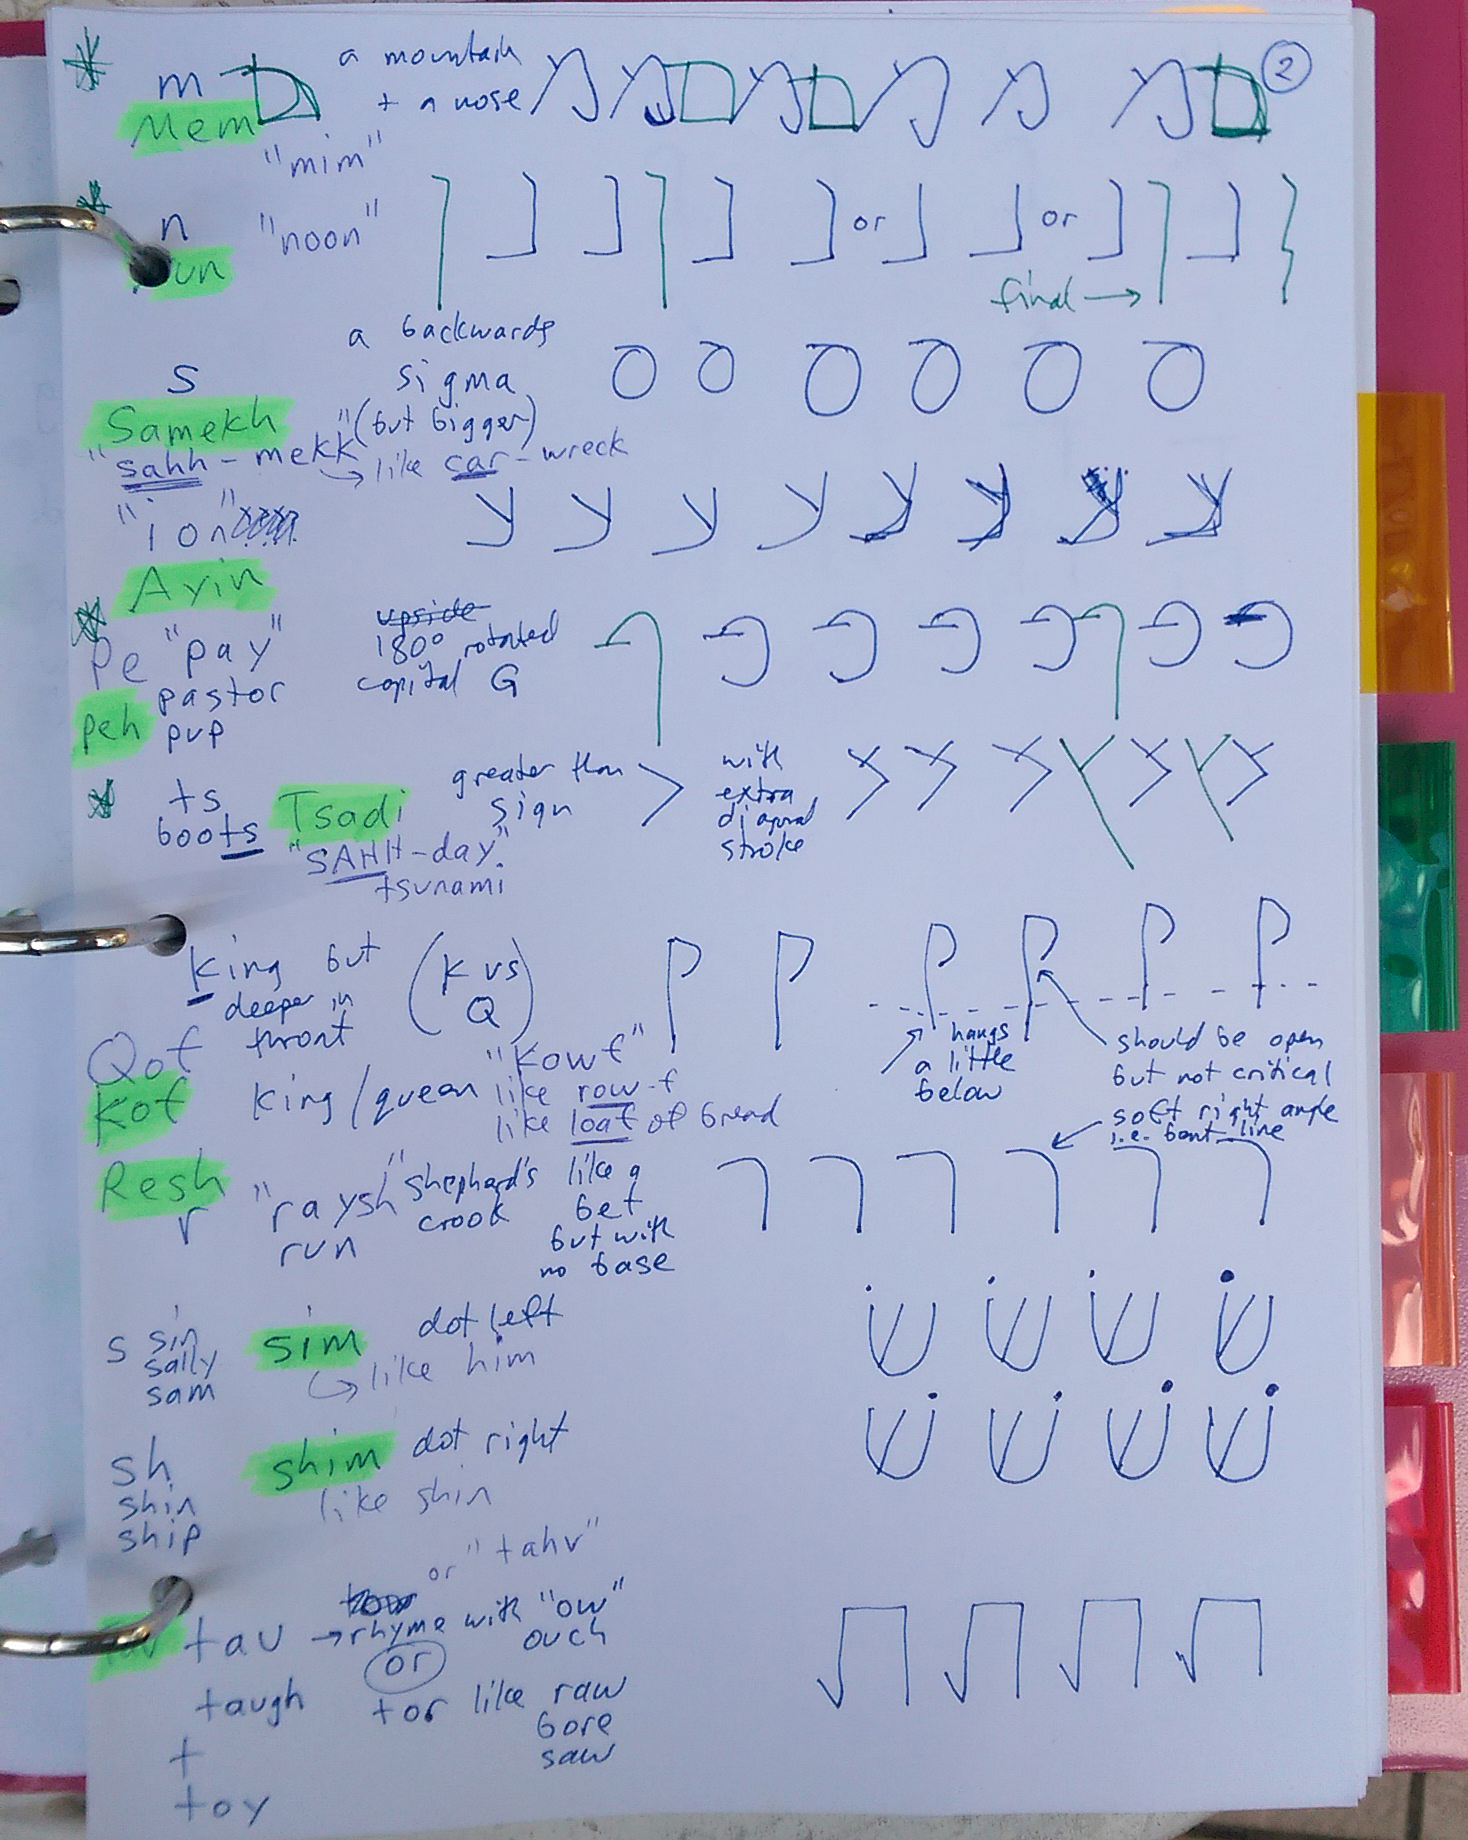 ②
m ם a mountain
+ a nose מ מ ם מ ם מ מ מ ם
Mem
"mim"
n "noon" ן נ נ ן נ נ or נ נ or נ ן נ ן
final →
a backwards
s sigma ס ס ס ס ס ס
Samekh (but bigger)
"sahh-mekk"
→ like car-wreck
"ion" ע ע ע ע ע ע ע ע
Ayin
Pe "pay" upside
180° rotated
capital G ף פ פ פ פ ף פ פ
pastor
peh pup
ts Tsadi greater than
sign > with
extra
diagonal
stroke צ צ צ ץ צ ץ צ
boots
"SAHH-day"
tsunami
king but
deeper in
throat (K vs
Q) ק ק ק ק ק ק
hangs
a little
below
should be open
but not critical
Qof "kowf"
Kof king/queen like row-f
like loaf of bread
soft right angle
i.e. bent line
Resh "raysh" shepherd's
crook like a
bet
but with
no base ר ר ר ר ר ר
r run
s sin sim dot left שׂ שׂ שׂ שׂ
sally → like him
sam
sh shim dot right שׁ שׁ שׁ שׁ
shin like shin
ship
or "tahv"
tav tav → rhyme with "ow"
ouch ת ת ת ת
or
taugh tor like raw
bore
saw
t
toy